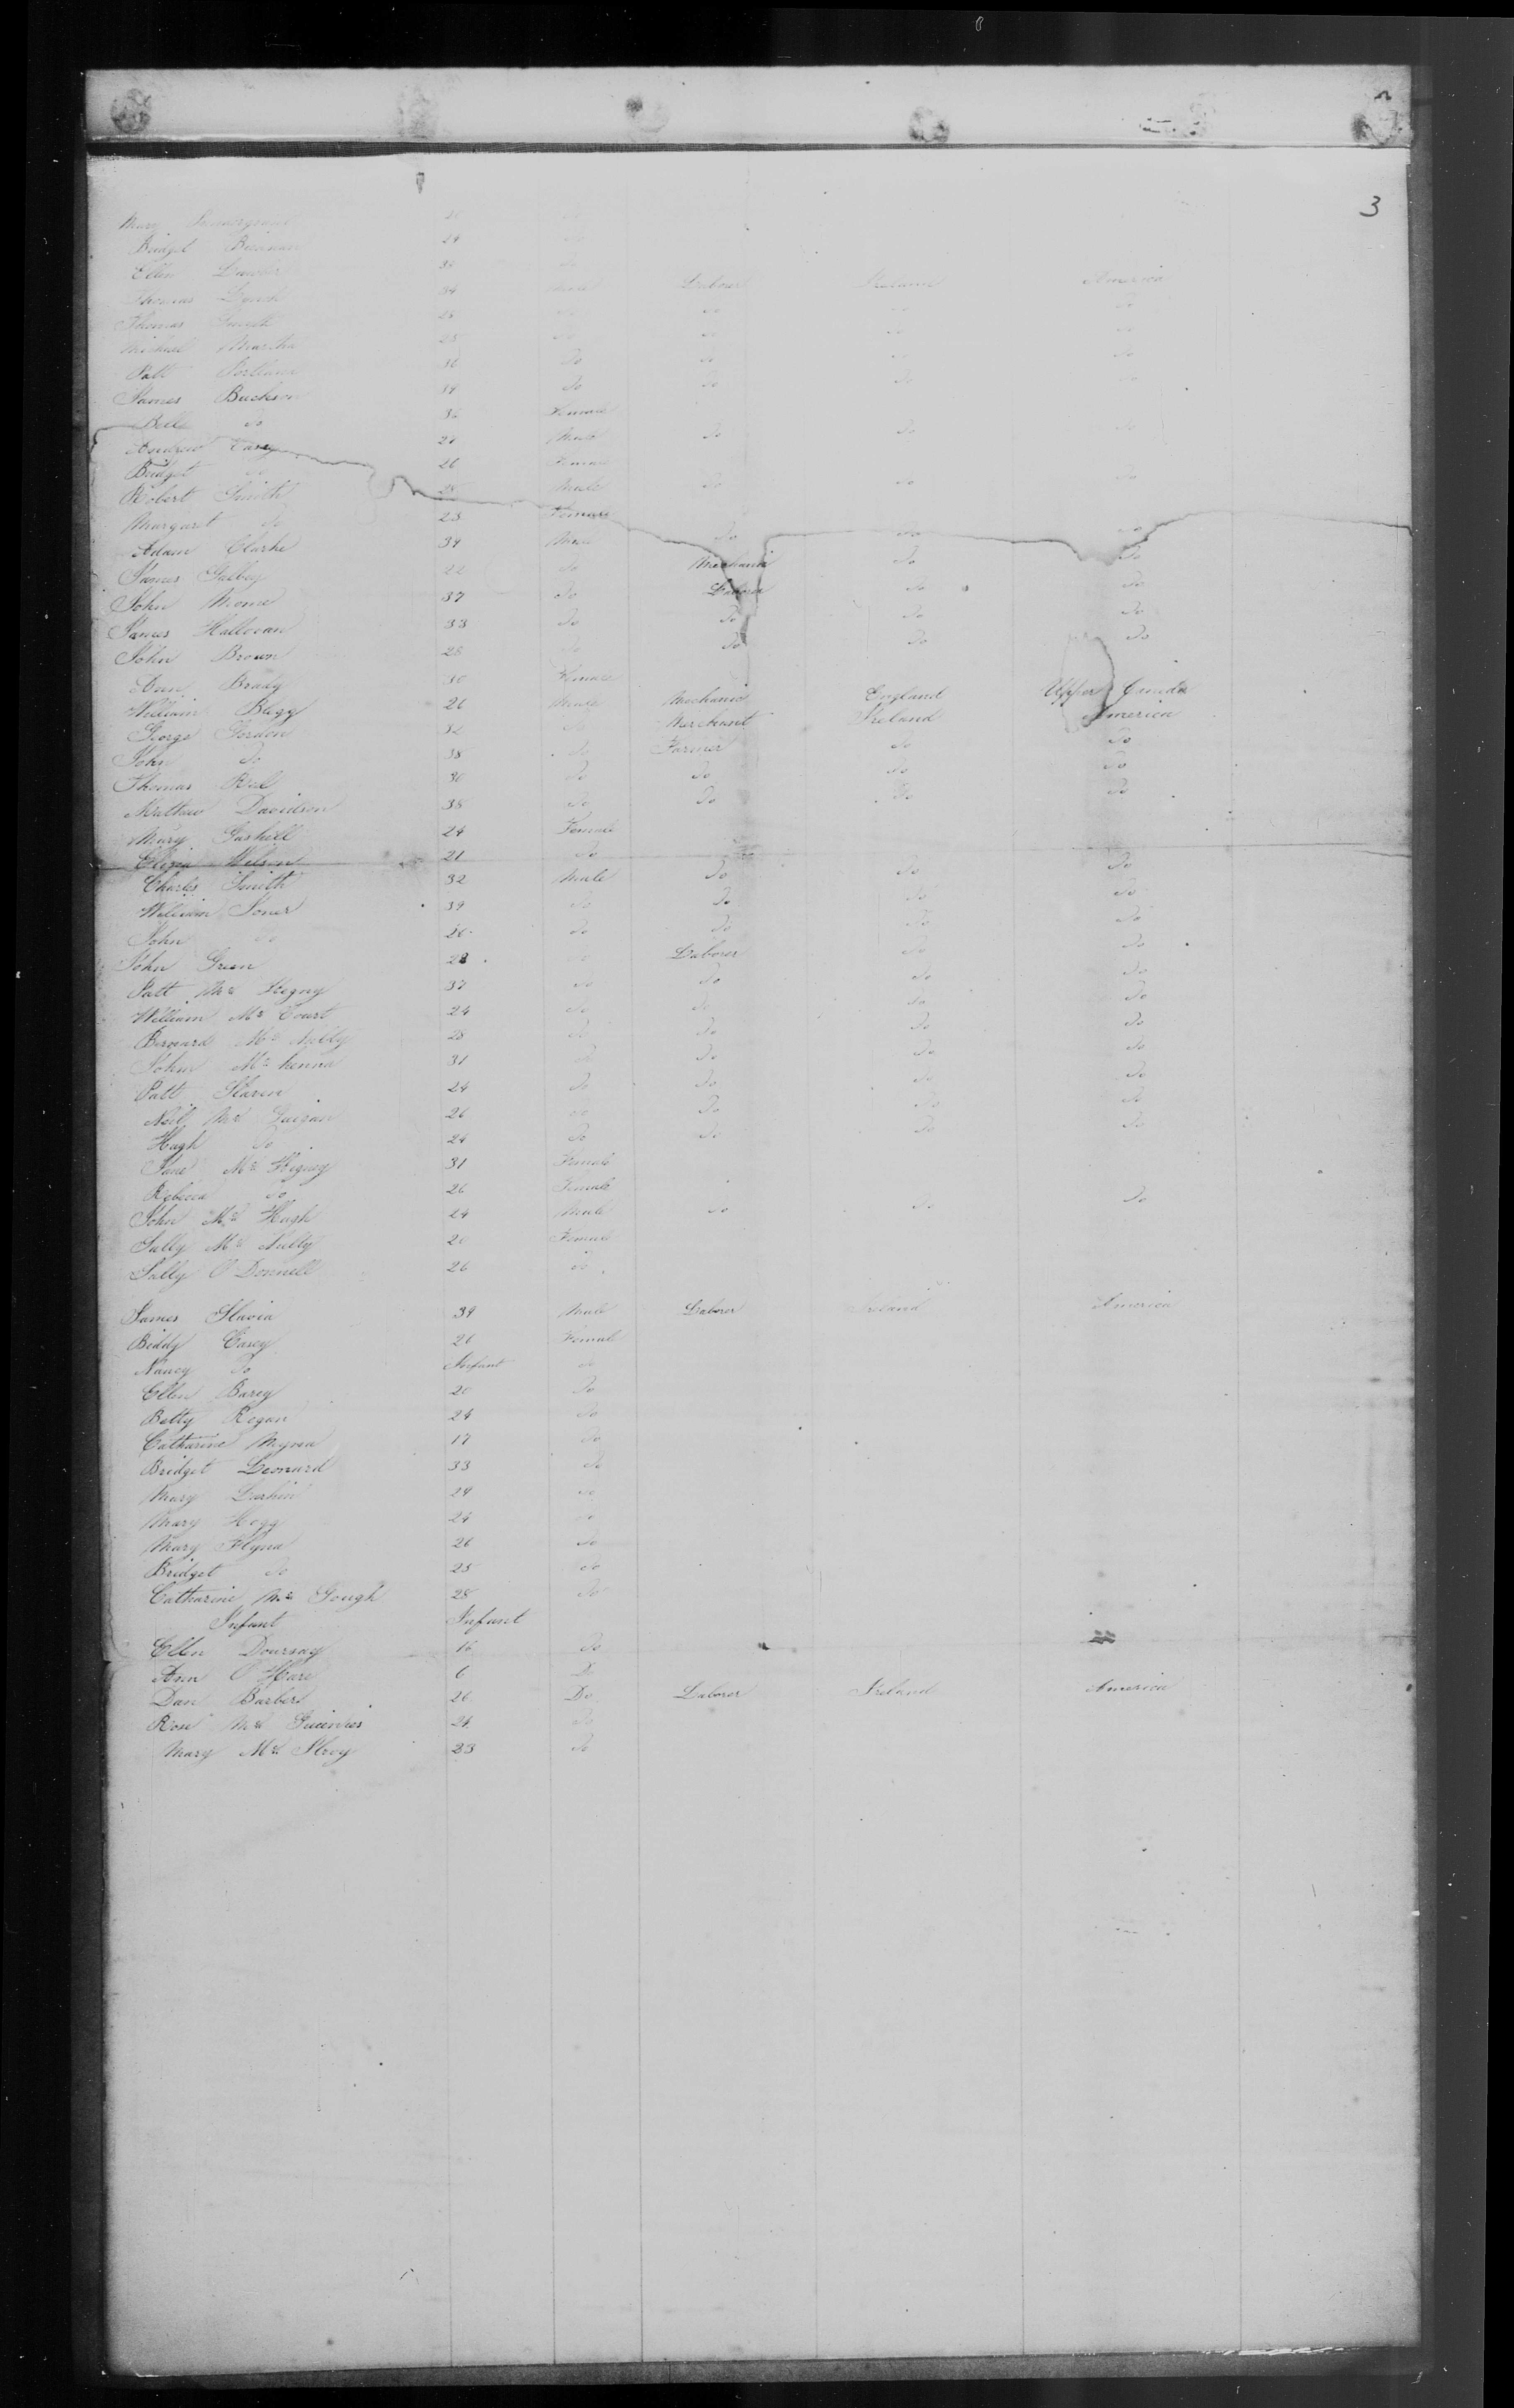 3
Mary 26 Do
Bridget Brennan 24 Do
Ellen Lawler 30 Do
Thomas Lynch 34 Male Labour Ireland America
Thomas Smith 28 Do Do Do Do
Michael Murtha 25 Do Do Do Do
Patt 36 Do Do Do Do
James 39 Do Do Do Do
Bell Do 36 Female
Andrew Casey 27 Male Do Do Do
Bridget Do 26 Female
Robert Smith 28 Male Do Do Do
Margaret Do 23 Female
Adam Clarke 39 Male Do Do Do
James 22 Do Mechanic Do Do
John 37 Do Labour Do Do
James Halloran 33 Do Do Do Do
John Brown 28 Do Do Do Do
Ann Brady 30 Female
William Blegg 26 Male Mechanic England Upper Canada
George Gordon 32 Do Merchant Ireland America
John Do 38 Do Farmer Do Do
Thomas 30 Do Do Do Do
Mathew Davidson 38 Do Do Do Do
Mary Gaskill 24 Female
Eliza Wilson 21 Do
Charles Smith 32 Male Do Do Do
William Jones 39 Do Do Do Do
John Do 26 Do Do Do Do
John Green 28 Do Laborer Do Do
Patt Mc 37 Do Do Do Do
William Mc Court 24 Do Do Do Do
Bernard Mc Nulty 28 Do Do Do Do
John Mc kenna 31 Do Do Do Do
Patt Slaven 24 Do Do Do Do
Neil Mc 26 Do Do Do Do
Hugh Do 24 Do Do Do Do
Jane Mc Higney 31 Female
Rebecca Do 26 Female
John Mc Hugh 24 Male Do Do Do
Sally Mc Nulty 20 Female
Sally O Donnell 26 Do
James Slavin 39 Male Laborer Ireland America
Biddy Casey 26 Female
Nancy Do Infant Do
Ellen Barey 20 Do
Betty Regan 24 Do
Catharine 17 Do
Bridget Leonard 33 Do
Mary Larkin 24 Do
Mary Hogg 24 Do
Mary Flynn 26 Do
Bridget Do 25 Do
Catharine Mc Gough 28 Do
Infant Infant
Ellen 16 Do
Ann O Hare 6 Do
Dan Barber 26 Do Laborer Ireland America
Rose Mc 24 Do
Mary Mc Ilroy 23 Do